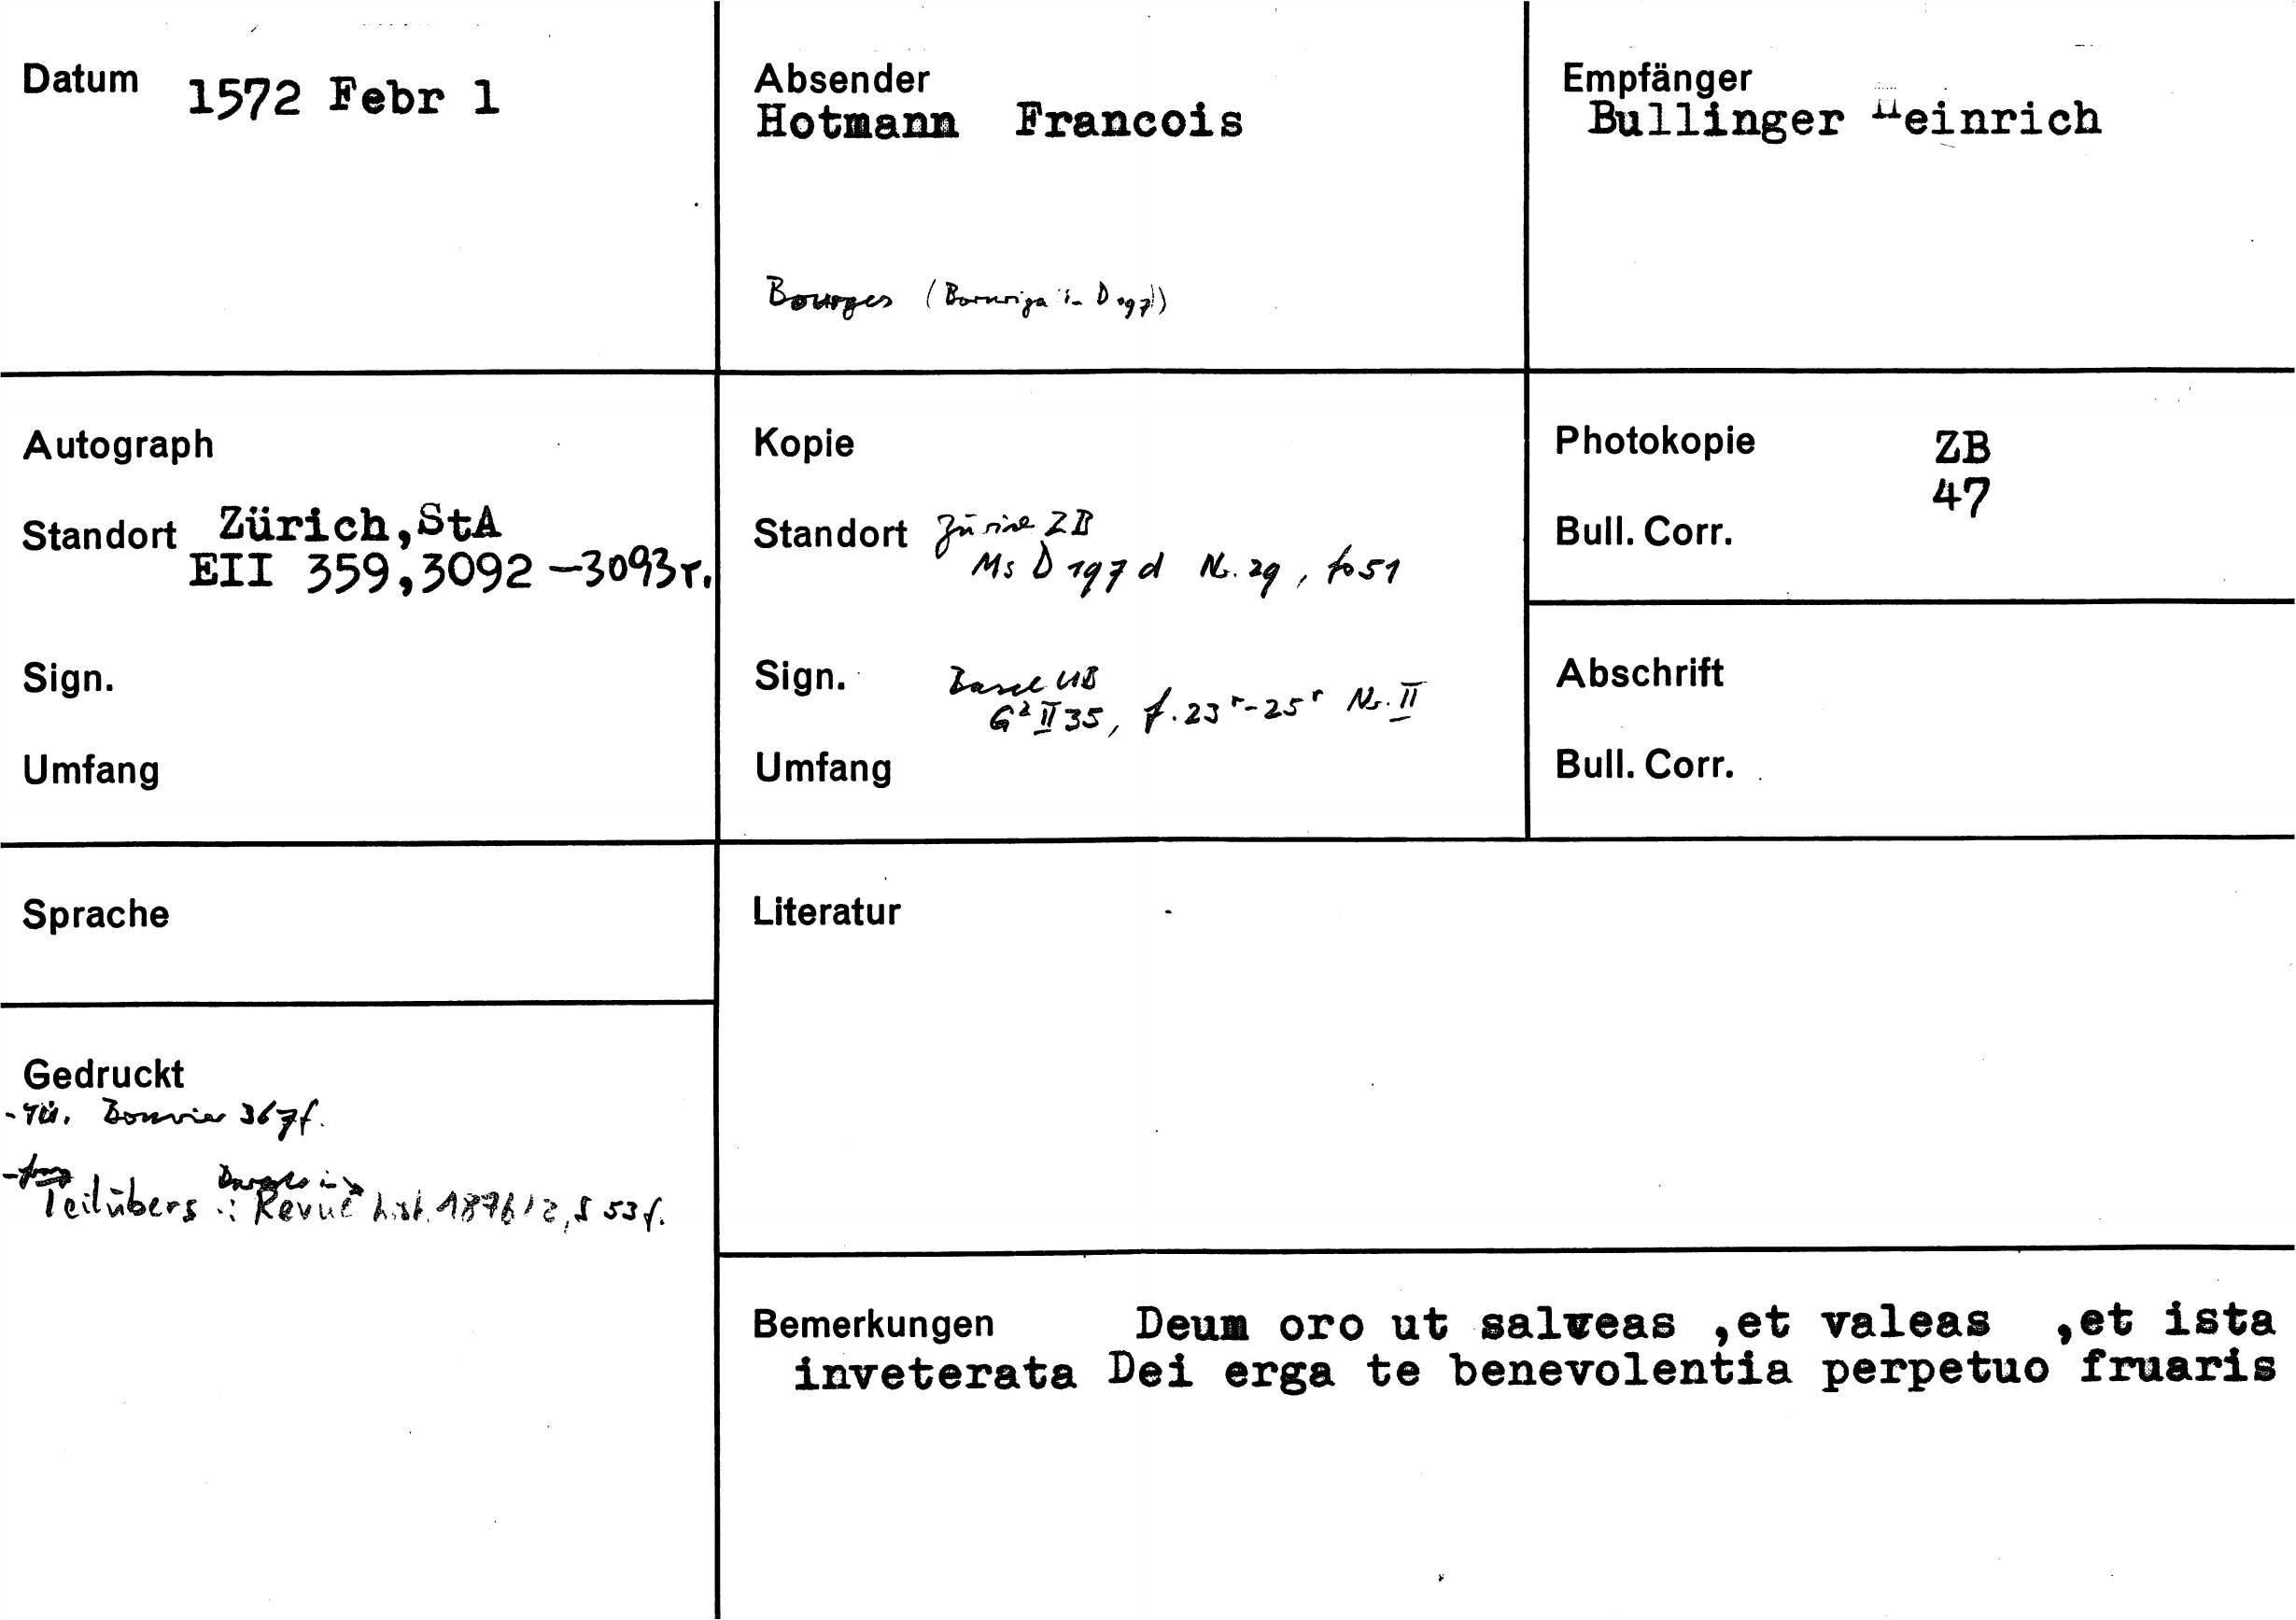 Datum 1572 Febr 1
Absender
Hotmann Francois
Bourges (Borusiga in D 197)
Empfänger
Bullinger Heinrich
Autograph
Standort Zürich,StA
EII 359,3092-3093r.
Sign.
Umfang
Kopie
Standort Zürich ZB
Ms D 197 d Nr. 29, fo 51
Sign. Basel UB
G² II 35, f. 23r-25r Nr. II
Umfang
Photokopie ZB
47
Bull. Corr.
Abschrift
Bull. Corr.
Sprache
Literatur
Gedruckt
-Tü. 367f.
Teilübers.: Revue hist. 1876/2, S 53f.
Bemerkungen Deum oro ut salveas ,et valeas ,et ista
inveterata Dei erga te benevolentia perpetuo fruaris